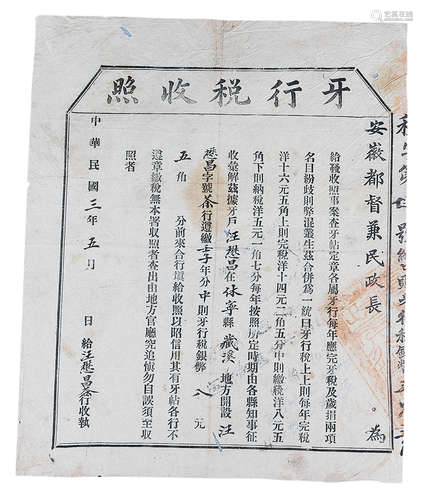 牙行稅收照
安徽都督兼民政長 。為
給發收照事案查牙帖定章各屬牙行每年應完牙稅及歲捐兩項
名目紛歧則弊混叢生茲合併為一統曰牙行稅上上則每年完稅
洋十六元五角上則完稅洋十四元二角五分中則繳稅洋八元五
角下則納稅洋五元一角七分每年按照所定時期由各縣知事征
收彙解茲據牙戶汪懋昌在休寧縣藏溪地方開設汪
懋昌字號茶行遵繳壬子年分中則牙行稅銀幣八元
五角 分前來合行還給收照以昭信用其有牙帖各行不
遵章繳稅無本署收照者查出由地方官廳究追慎勿自誤須至收
照者
中華民國三年五月 日給汪懋昌茶行收執